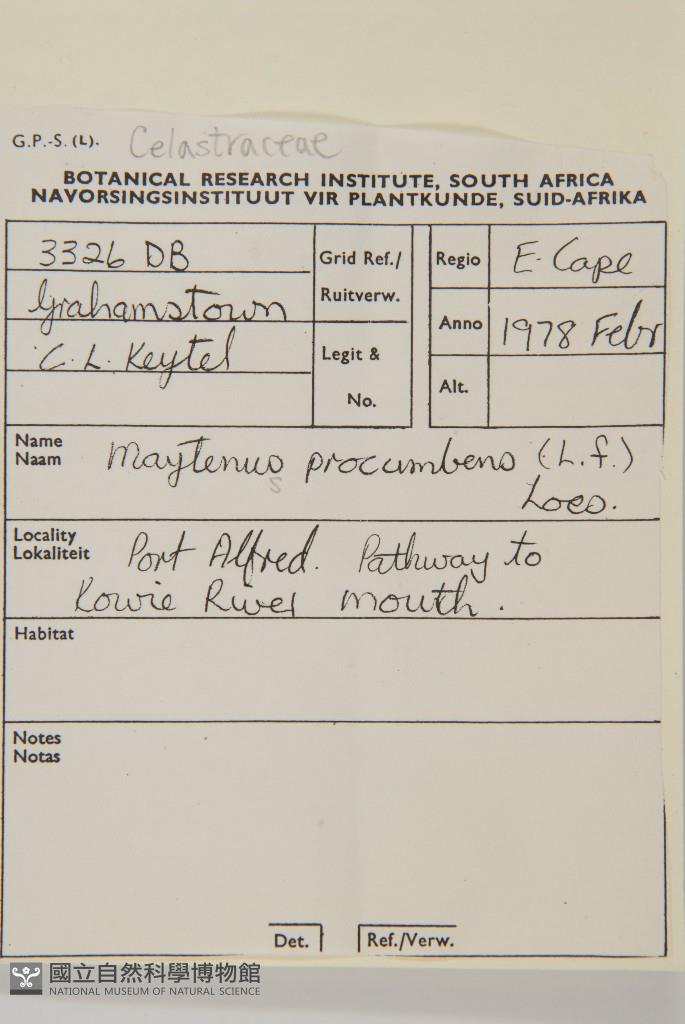 G.P.-S. (L). Celastraceae
BOTANICAL RESEARCH INSTITUTE, SOUTH AFRICA
NAVORSINGSINSTITUUT VIR PLANTKUNDE, SUID-AFRIKA
3326 DB
Grahamstown
C. L. Keytel
Grid Ref./
Ruitverw.
Legit &
No.
Regio E. Cape
Anno 1978 Febr
Alt.
Name
Naam
Maytenus procumbens (L.f.)
s
Loes.
Locality
Lokaliteit
Port Alfred. Pathway to
Kowie River mouth.
Habitat
Notes
Notas
Det.
Ref./Verw.
國立自然科學博物館
NATIONAL MUSEUM OF NATURAL SCIENCE